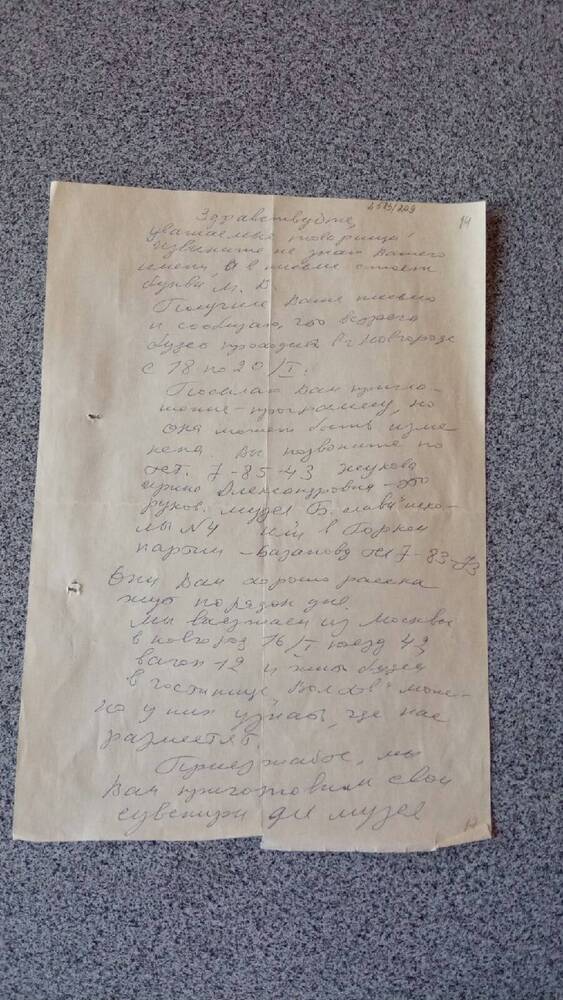 4573/209
14
Здравствуйте,
уважаемые товарищи!
Извините не знаю Вашего
имени, а в письме стоят
буквы М. В
Получила Ваше письмо
и сообщаю, что встреча
будет проходить в г Новгороде
с 18 по 20/I.
Посылаю Вам пригла-
шение-программу, но
она может быть изме
нена. Вы позвоните по
тел. 7-85-43 Жукова
Ирина Александровна - это
руков. музея Б. славы школ-
лы N4 или в Горком
партии - Базанову тел 7-83-73
Они Вам хорошо расска
жут порядок дня.
Мы выезжаем из Москвы
в Новгород 16/I поезд 42
вагон 12 и жить будем
в гостинице "Волхов" може-
те у них узнать, где нас
разместят.
Приезжайте, мы
Вам приготовили свои
сувениры для музея